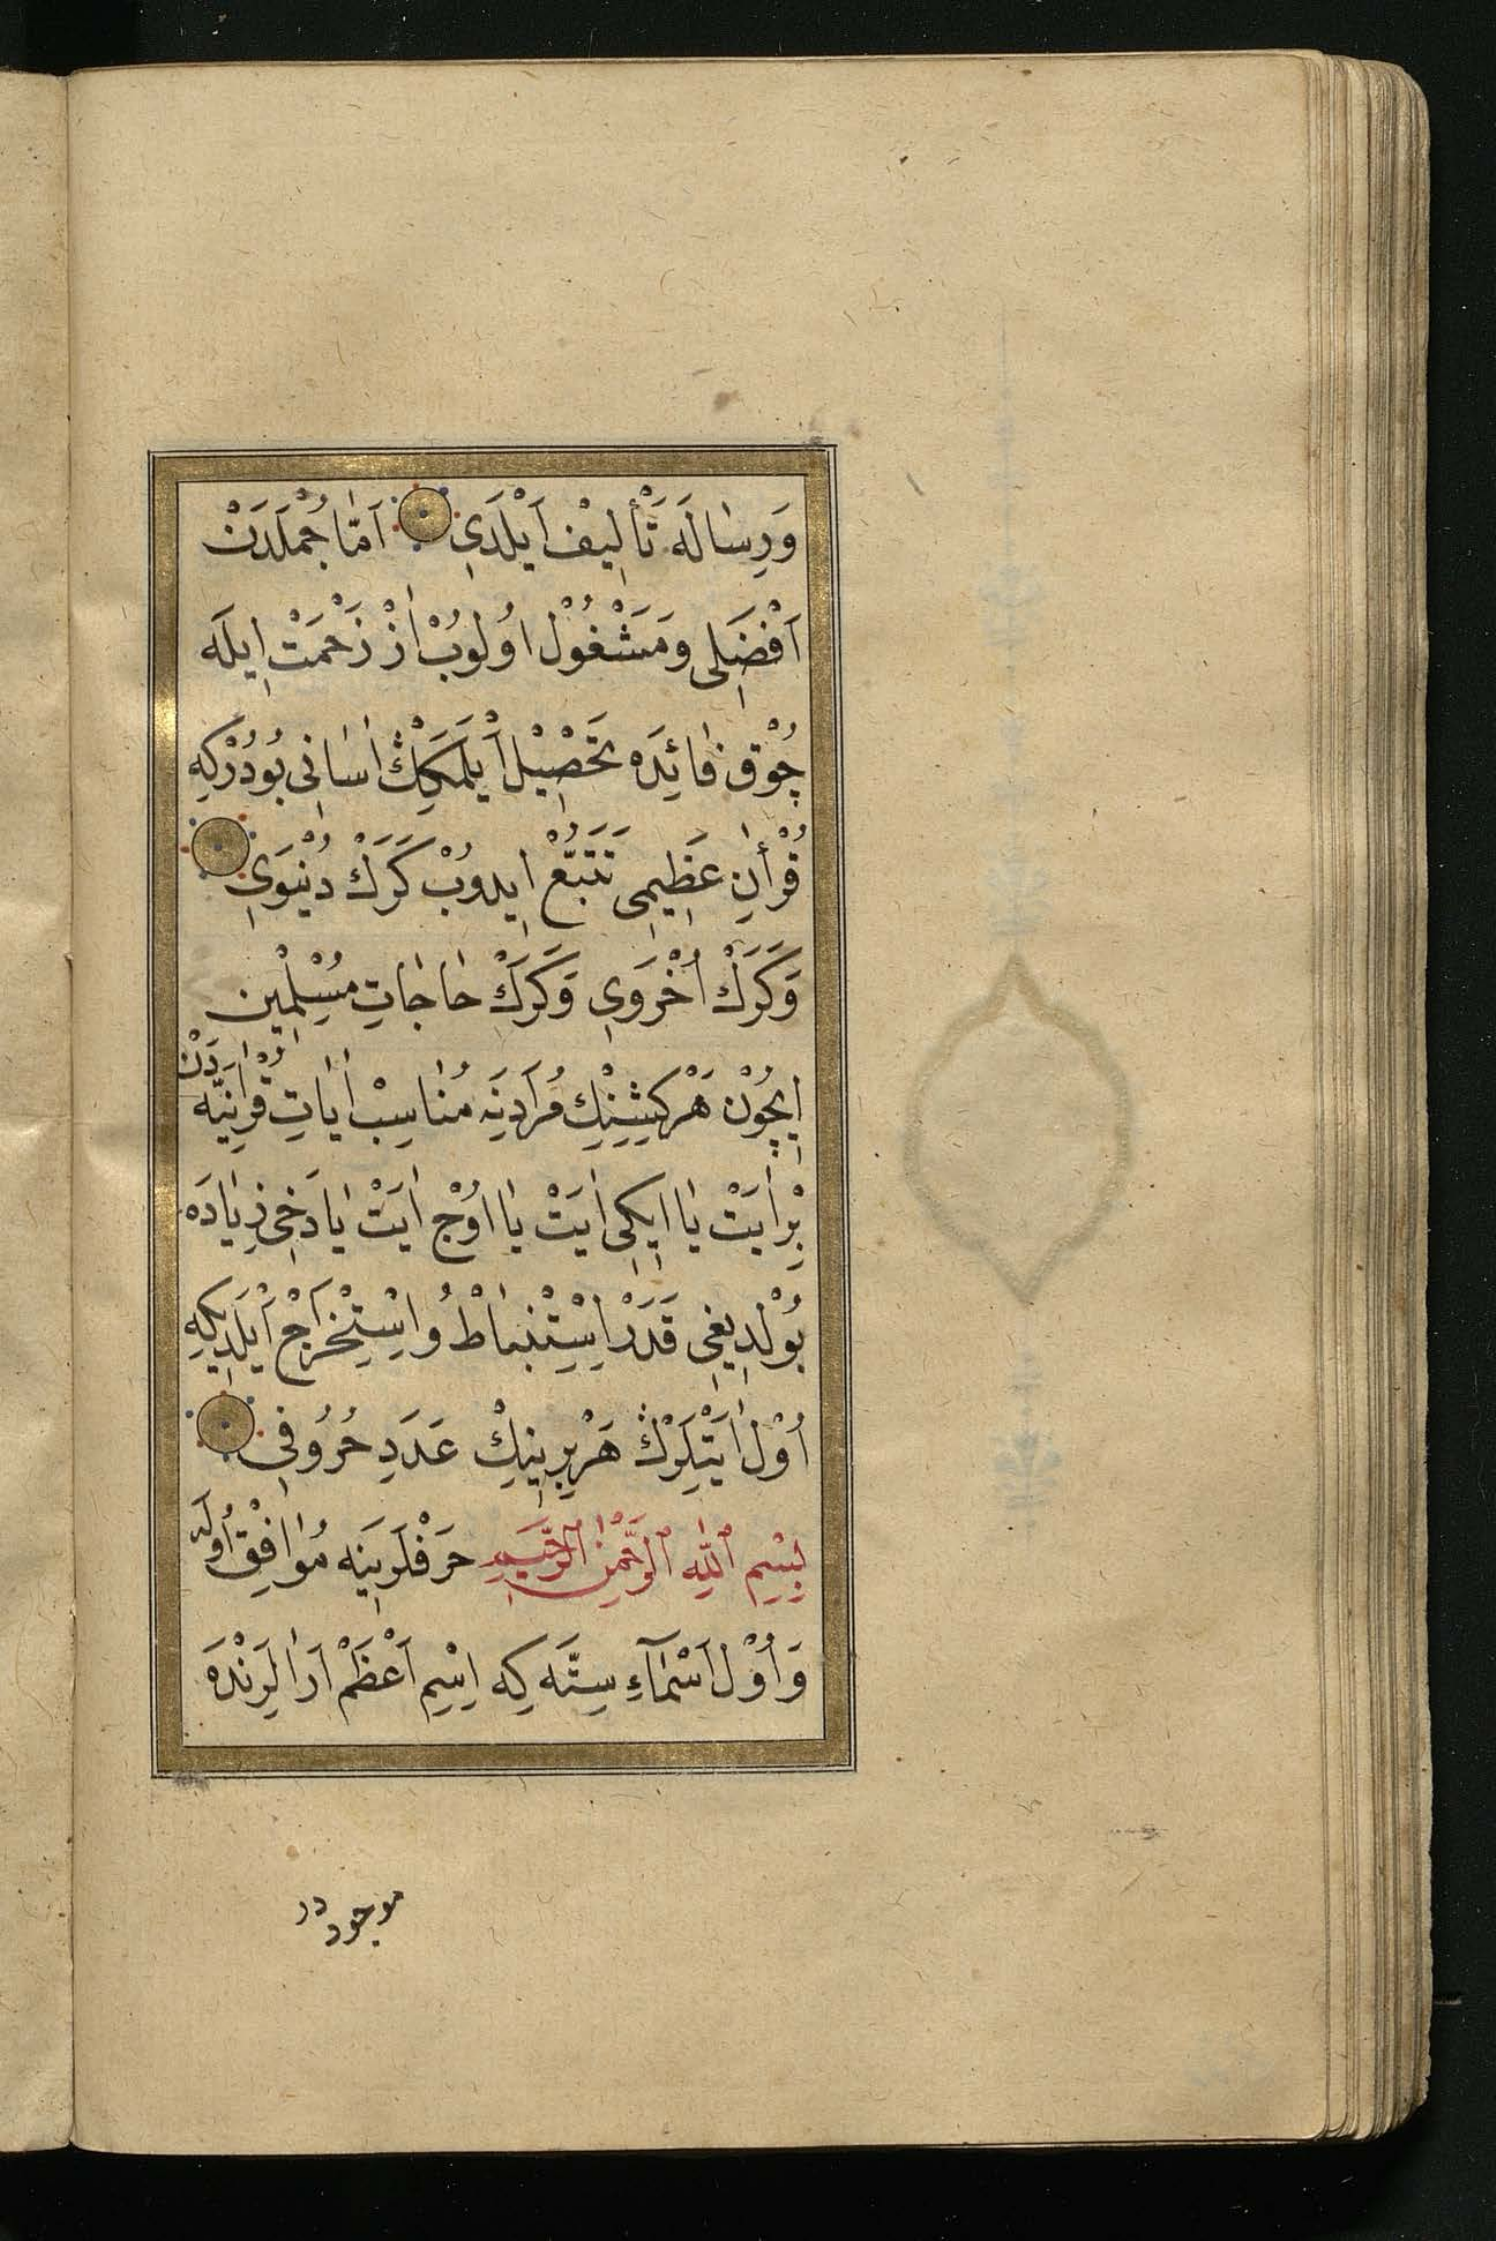 وَرِسَالَه تَأْلِيفْ اَيْلَدِي اَمَّا جُمْلَدَنْ
اَفْضَلِى وَمَشْغُوْل اوُلوُبْ ازْ زَحْمَتْ اِيلَه
چُوْق فَائِدَه تَحْصِيْل اَيْلَمَكِڭْ اٰسَانِى بُودُرْكِه
قُرْأٰنِ عَظِيمِى تَتَبُّعْ اِيدوُبْ كَرَكْ دُنْيَوِي
وَكَرَكْ اُخْرَوِي وَكَرَكْ حَاجَاتِ مُسْلِمِين
اِيچُوْن هَرْ كِيشِنِكْ مُرَادِنَه مُنَاسِبْ اٰيَاتِ قُرْاٰنِيَّه دَنْ
بِرْ اٰيَتْ يَا اِيكِى اٰيَتْ يَا اوُجْ اٰيَتْ يَا دَخِى زِيَادَه
بُوْلدِيغِى قَدَرْ اِسْتِنْبَاطْ وُ اِسْتِخْرَاجْ اَيْلَدِيكِه
اُوْل اٰيَتْلَرْڭْ هَرْ بِرِينِكْ عَدَدِ حُرُوُفِى
بِسْمِ ٱللّٰهِ ٱلرَّحْمٰنِ ٱلرَّحِيمِ حَرْفْلَرِينَه مُوَافِقْ اُولَه
وَ اُوْل اَسْمَآءِ سِتَّه كِه اِسْمِ اَعْظَمْ اَرَالَرِنْدَه
موجود در